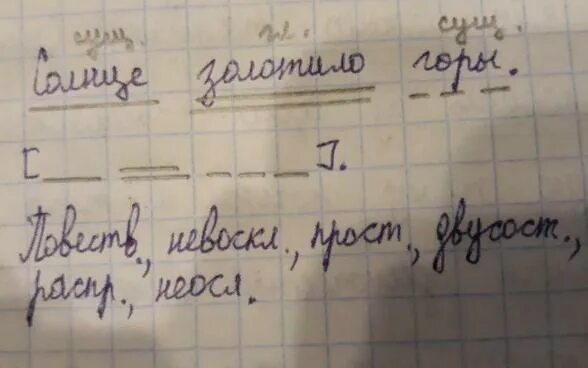 сущ. гл. сущ.
Солнце золотило горы.
[ ].
Повеств., невоскл., прост., двусост.,
распр., неосл.